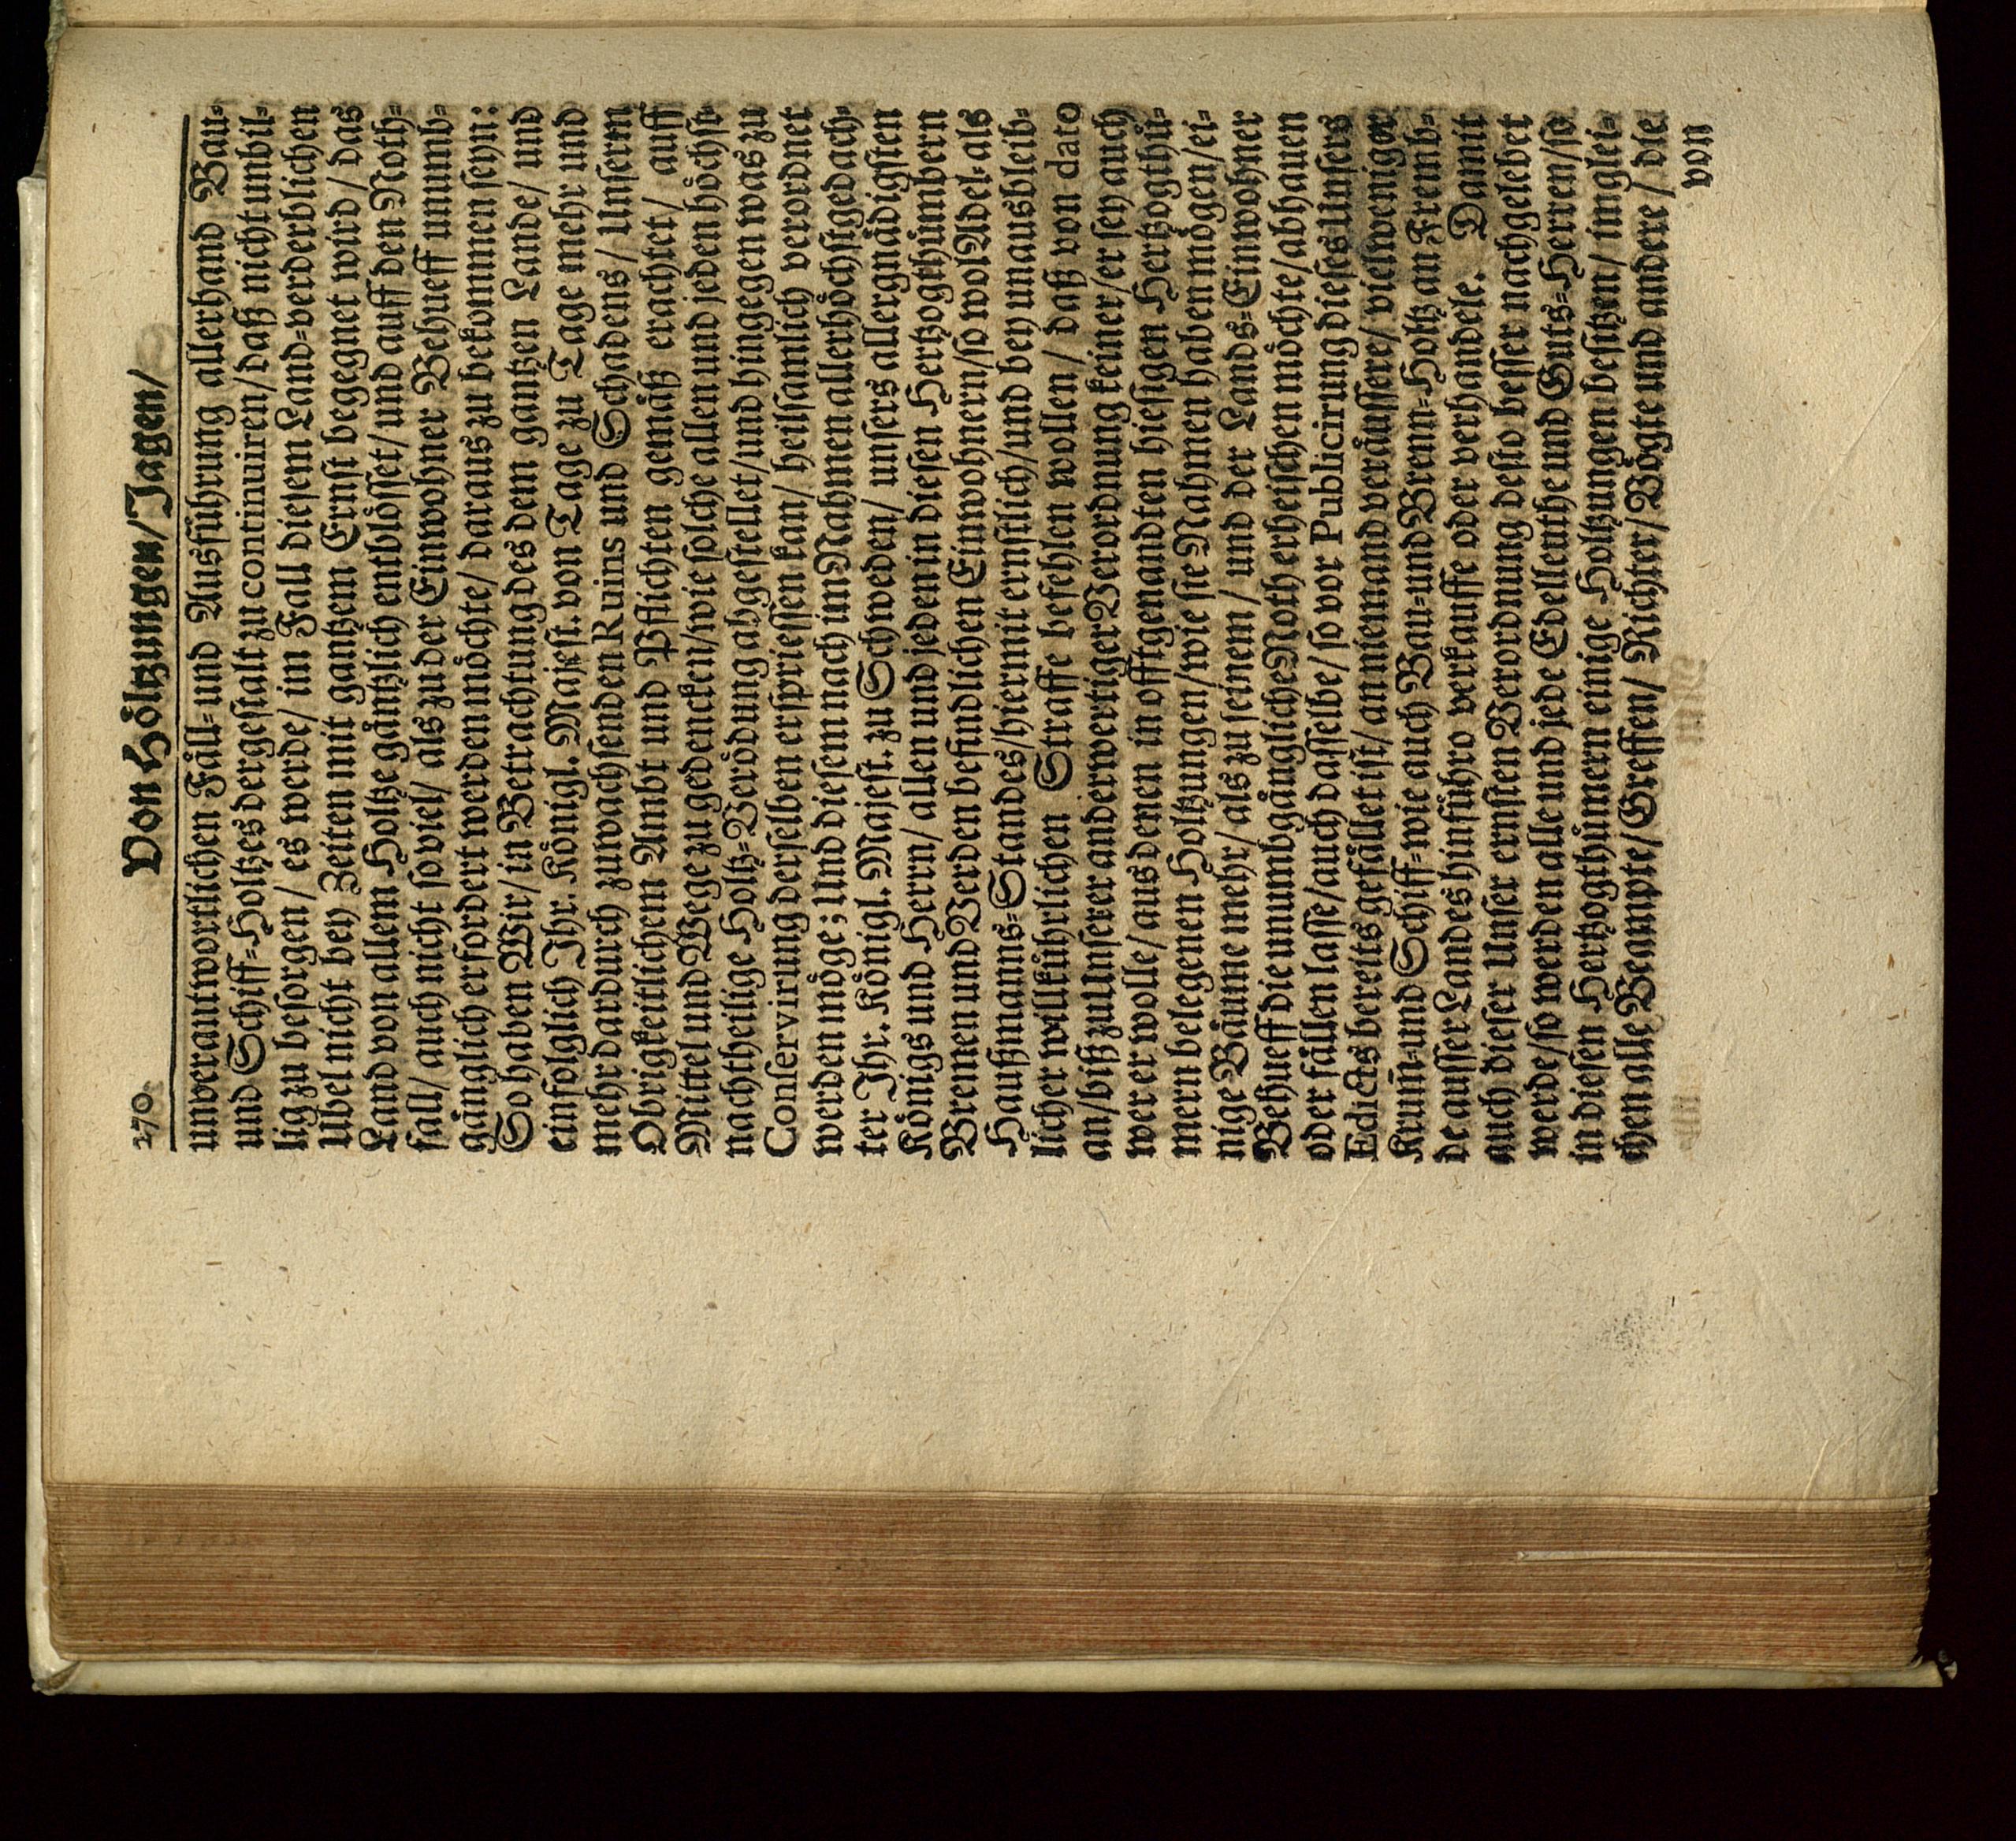 270 Von Höltzungen/Jagen/
unverantwortlichen Fäll-und Ausführung allerhand Bau-
und Schiff-Holtzes dergestalt zu continuiren/daß nicht unbil-
lig zu besorgen/ es werde/ im Fall diesem Land-verderblichen
Ubel nicht bey Zeiten mit gantzem Ernst begegnet wird/ das
Land von allem Holtze gäntzlich entblösset/und auff den Noth-
fall/ auch nicht so viel/ als zu der Einwohner Behueff unumb-
gänglich erfordert werden möchte/ daraus zu bekommen seyn:
So haben Wir/ in Betrachtung des dem gantzen Lande/ und
einfolglich Ihr. Königl. Majest. von Tage zu Tage mehr und
mehr dardurch zuwachsenden Ruins und Schadens/ Unserm
Obrigkeitlichem Ambt und Pflichten gemäß erachtet/ auff
Mittel und Wege zu gedencken/wie solche allen und jeden höchst-
nachtheilige Holtz-Verödung abgestellet/und hingegen was zu
Conservirung derselben ersprießen kan/ heilsamlich verordnet
werden möge; Und diesem nach im Nahmen allerhöchstgedach-
ter Ihr. Königl. Majest. zu Schweden/ unsers allergnädigsten
Königs und Herrn/ allen und jeden in diesen Hertzogthümbern
Bremen und Verden befindlichen Einwohnern/so wol Adel-als
Haußmanns-Standes/hiermit ernstlich/und bey unausbleib-
licher willkührlichen Straffe befehlen wollen/ daß von dato
an/biß zu Unserer anderwertiger Verordnung keiner/er sey auch
wer er wolle/ aus denen in offtgenandten hiesigen Hertzogthü-
mern belegenen Holtzungen/wie sie Nahmen haben mögen/ei-
nige Bäume mehr/ als zu seinem/ und der Lands-Einwohner
Behueff die unumbgängliche Noth erheischen möchte/abhauen
oder fällen lasse/auch dasselbe/so vor Publicirung dieses Unsers
Edicts bereits gefället ist/ an niemand veräussere/ vielweniger
Krum̃-und Schiff-wie auch Bau-und Brenn-Holtz an Fremb-
de ausser Landes hinführo verkauffe oder verhandele. Damit
auch dieser Unser ernsten Verordnung desto besser nachgelebet
werde/so werden alle und jede Edelleuthe und Guts-Herren/so
in diesen Hertzogthümern einige Holtzungen besitzen/ inglei-
chen alle Beampte/Greffen/ Richter/ Vögte und andere/ die
von